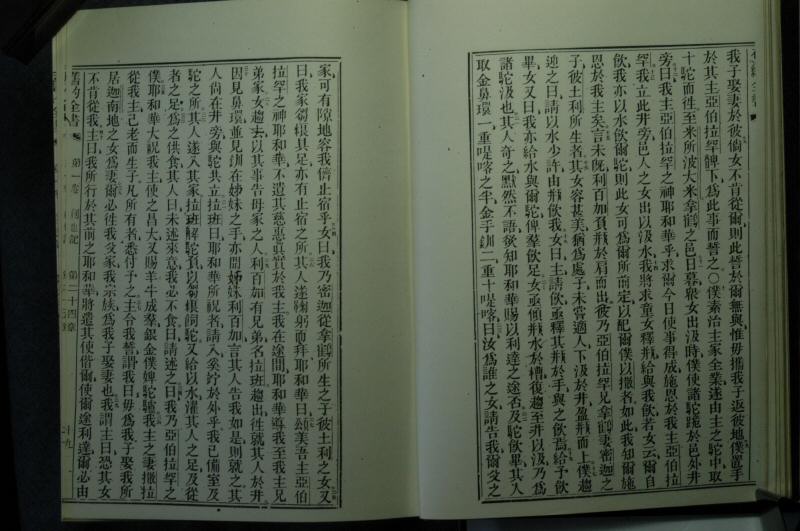 我子娶妻於彼倘女不肯從爾則此誓於爾無與惟毋攜我子返彼地僕置手
於其主亞伯拉罕髀下爲此事而誓之〇僕素治主家全業遂由主之駝中取
十駝而往至米所波大米拿鶴之邑日暮衆女出汲時僕使諸駝跪於邑外井
旁曰我主亞伯拉罕之神耶和華乎求爾今日使事得成施恩於我主亞伯拉
罕我立此井旁邑人之女出以汲水我將求童女擠缾給與我飮若女云爾自
飮我亦以水飮爾駝則此女可爲爾所前定以配爾僕以撒者如此我知爾施
恩於我主矣言未旣利百加負缾於肩而出彼乃亞伯拉罕兄拿鶴妻密迦之
子彼土利所生者其女容甚美猶爲處子未嘗適人下汲於井盈缾而上僕趨
迎之曰請以水少許由爾缾飮我女曰主請飮亟釋其缾於手與之飮焉給予飮
畢女又曰我亦給水與爾駝俾羣飮足女亟傾缾水於槽復趨至井以汲乃爲
諸駝汲也其人奇之默然不語欲知耶和華賜以利達之途否及駝飮畢其人
取金鼻環一重半喀之金手釧二重十喀曰汝爲誰之女請告我爾父之
家可有隙地容我儕止宿乎女曰我乃密迦從拿鶴所生之子彼土利之女又
曰我家芻糗具足亦有止宿之所其人遂鞠躬而拜耶和華曰頌美吾主亞伯
拉罕之神耶和華不遺其慈惠眞實於我主我在途間耶和華導我至我主兄
弟家女趨去以其事告母家之人利百加有兄弟名拉班趨出往就其人於井
因見鼻環並見釧在姊妹之手亦聞姊妹利百加言其人告我如是則就之其
人尚在井旁與駝共立拉班曰耶和華所祝者請入奚竚於外乎我已備室及
駝之所其人遂入其家拉班解駝負以芻糗飼駝又給以水濯其人之足及從
者之足爲之供食其人曰未述來意我必不食曰請述之曰我乃亞伯拉罕之
僕耶和華大祝我主使之昌大又賜羊牛成羣銀金僕婢駝驢我主之妻撒拉
從我主已老而生子凡所有者悉付予之主令我誓謂我曰毋爲我子娶我所
居迦南地之女爲妻爾必往我父家我宗族爲我子娶妻也我謂主曰恐其女
不肯從我主曰我所行於其前之耶和華將遣其使偕爾使爾途利達爾必由
舊約全書 第一卷 創世記 第二十四章